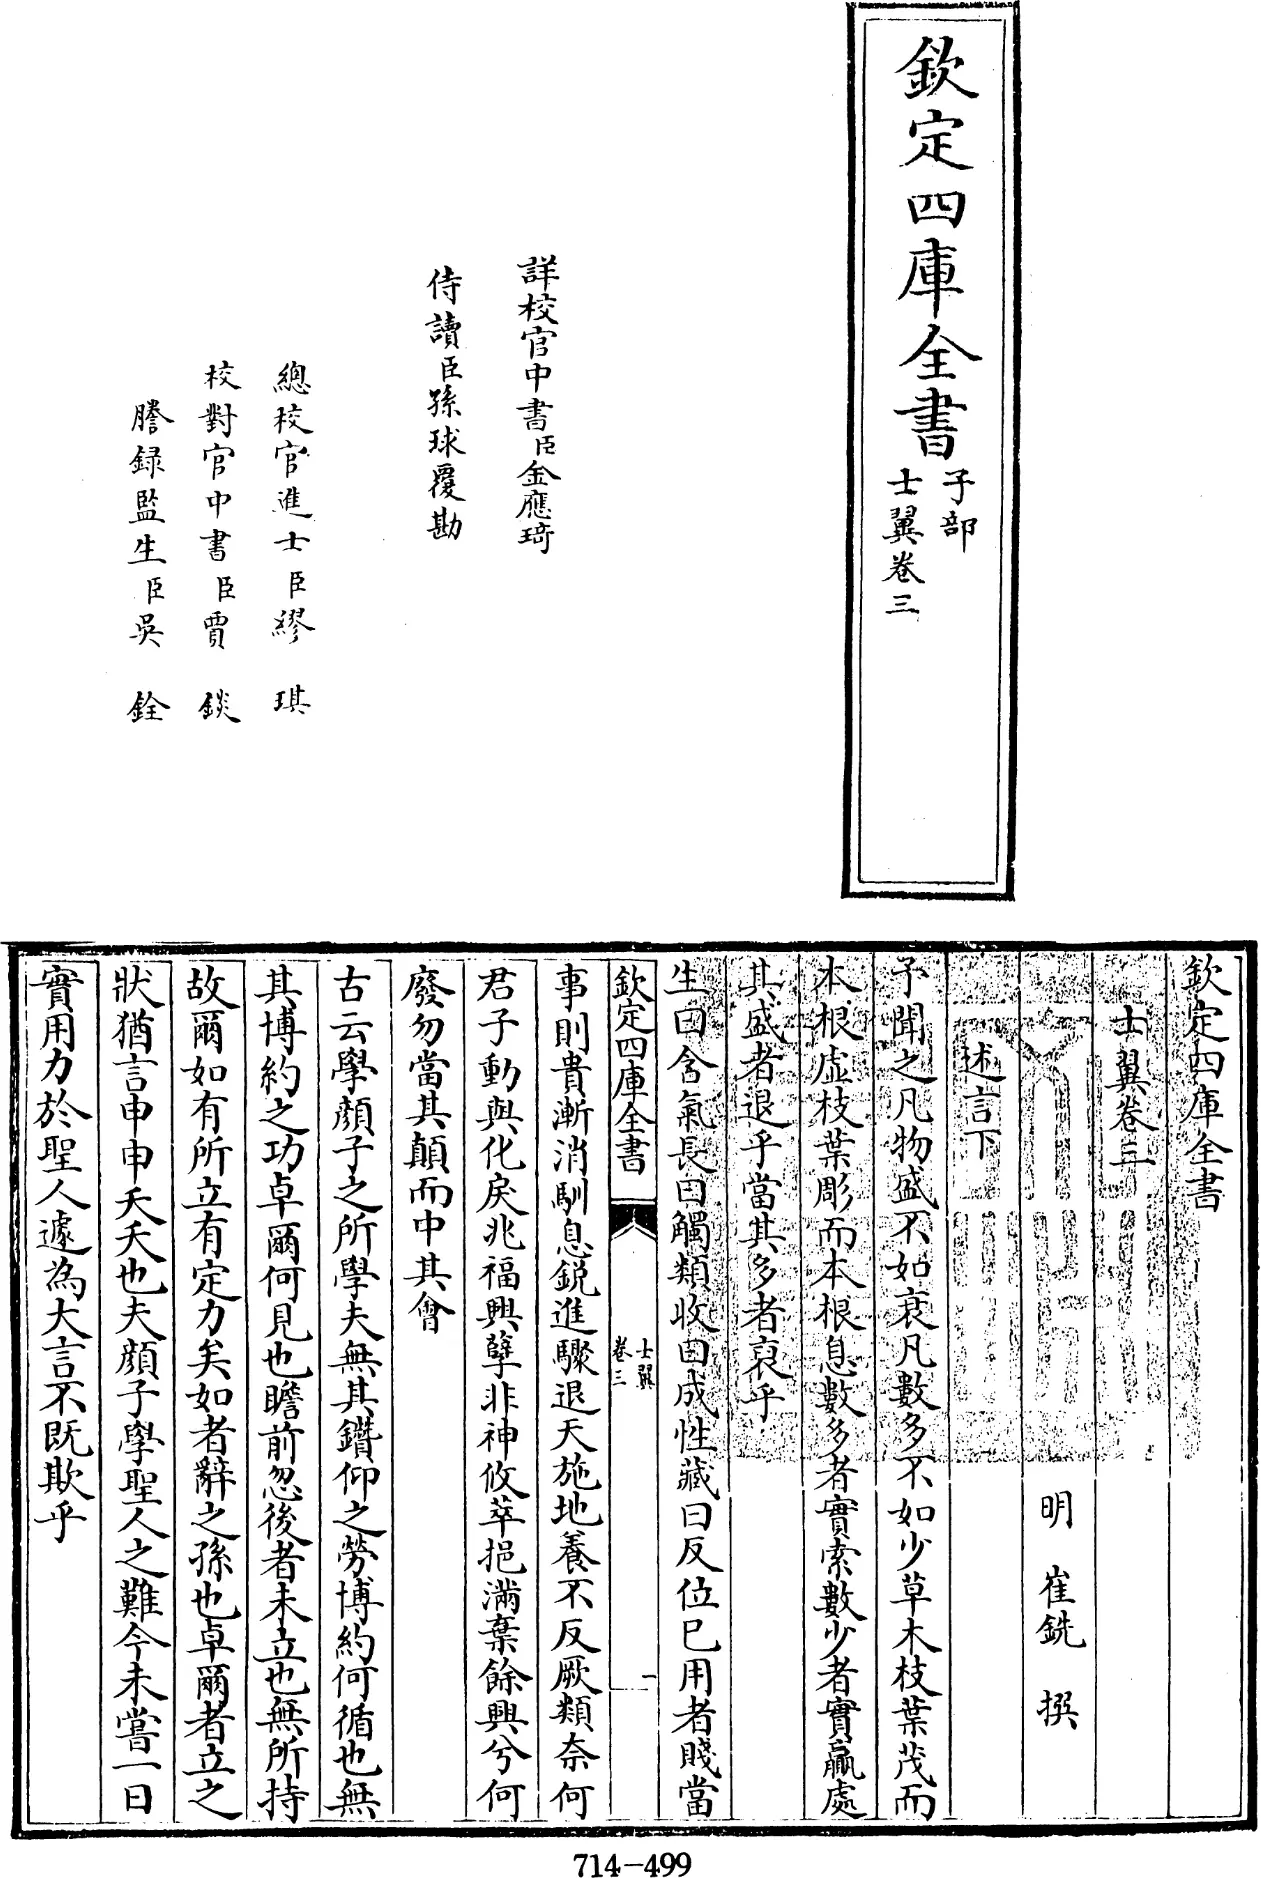 欽定四庫全書
子部
士翼卷三
詳校官中書臣金應琦
侍讀臣孫球覆勘
總校官進士臣繆琪
校對官中書臣賈錟
謄録監生臣吳銓
欽定四庫全書
士翼卷三
明 崔銑 撰
述言下
予聞之凡物盛不如衰凡數多不如少草木枝葉茂而
本根虛枝葉彫而本根息數多者實索數少者實贏處
其盛者退乎當其多者裒乎
生曰含氣長曰觸類收曰成性藏曰反位已用者賤當
欽定四庫全書
士翼
卷三
一
事則貴漸消馴息鋭進驟退天施地養不反厥類奈何
君子動與化戾兆福興孽非神攸萃挹滿棄餘興兮何
廢勿當其顛而中其會
古云學顏子之所學夫無其鑽仰之勞博約何循也無
其博約之功卓爾何見也瞻前忽後者未立也無所持
故爾如有所立有定力矣如者辭之孫也卓爾者立之
狀猶言申申夭夭也夫顏子學聖人之難今未嘗一日
實用力於聖人遽為大言不既欺乎
714-499